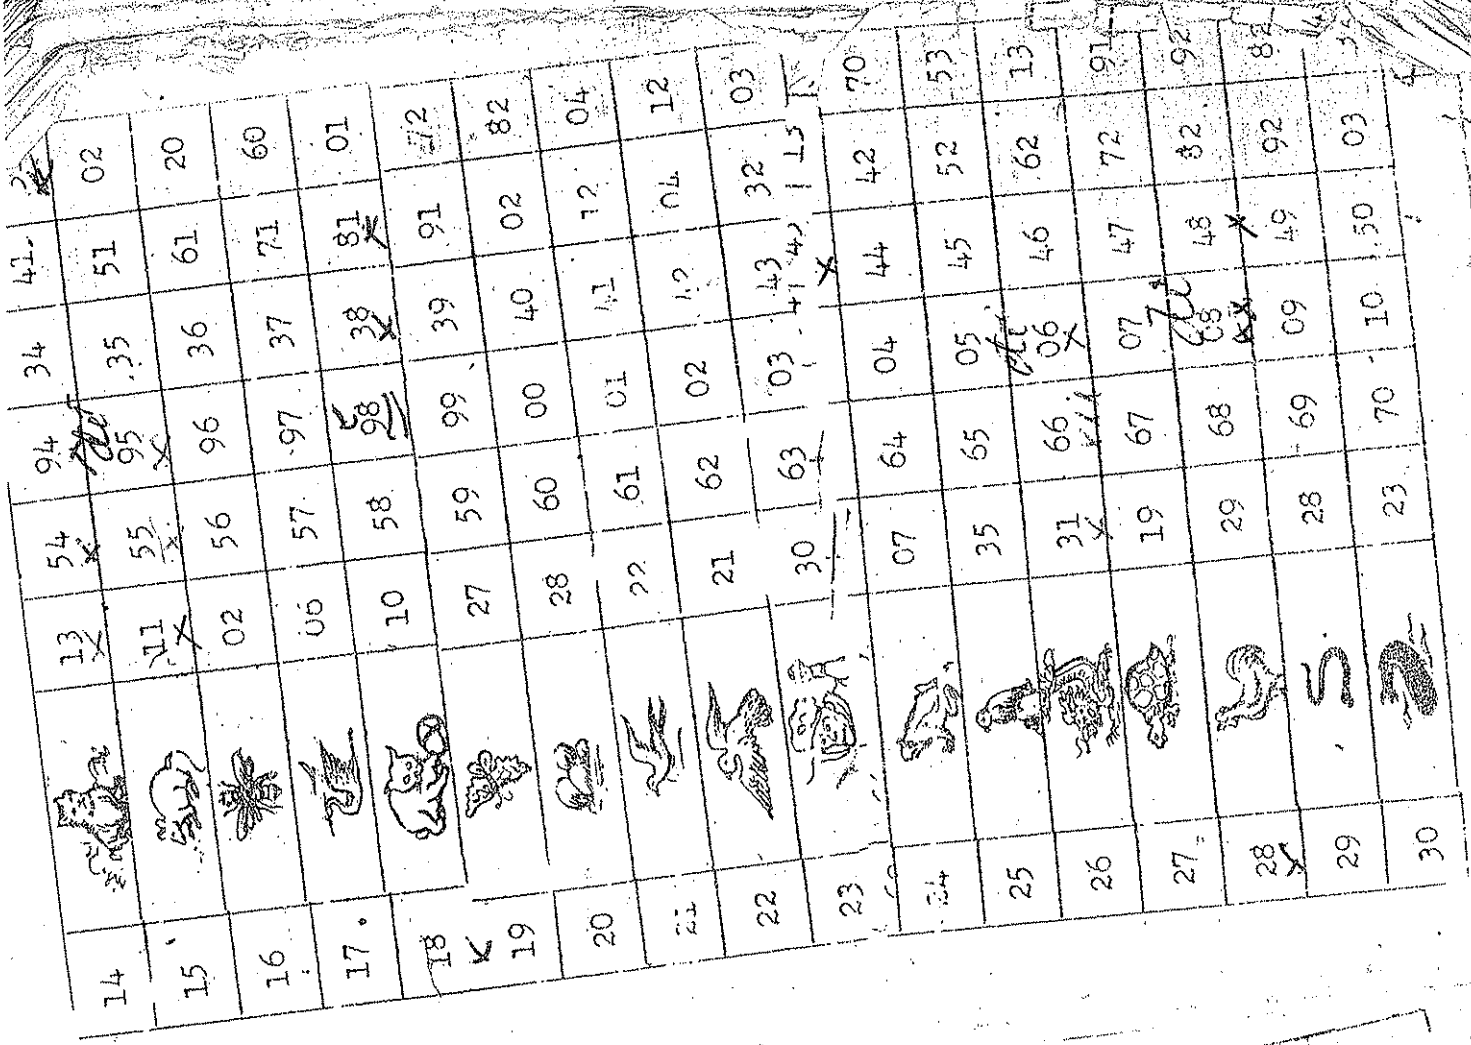 14 13 54 94 34 41
15 11 55 95 35 51 02
16 02 56 96 36 61 20
17 06 57 97 37 71 60
18 10 58 98 38 81 01
19 27 59 99 39 91
20 28 60 00 40 02 82
21 22 61 01 41 12 04
22 21 62 02 42 04 12
23 30 63 03 43 32 03
24 07 64 04 44 42 70
25 35 65 05 45 52 53
26 31 66 06 46 62 13
27 19 67 07 47 72 91
28 29 68 08 48 82 92
29 28 69 09 49 92 82
30 23 70 10 50 03